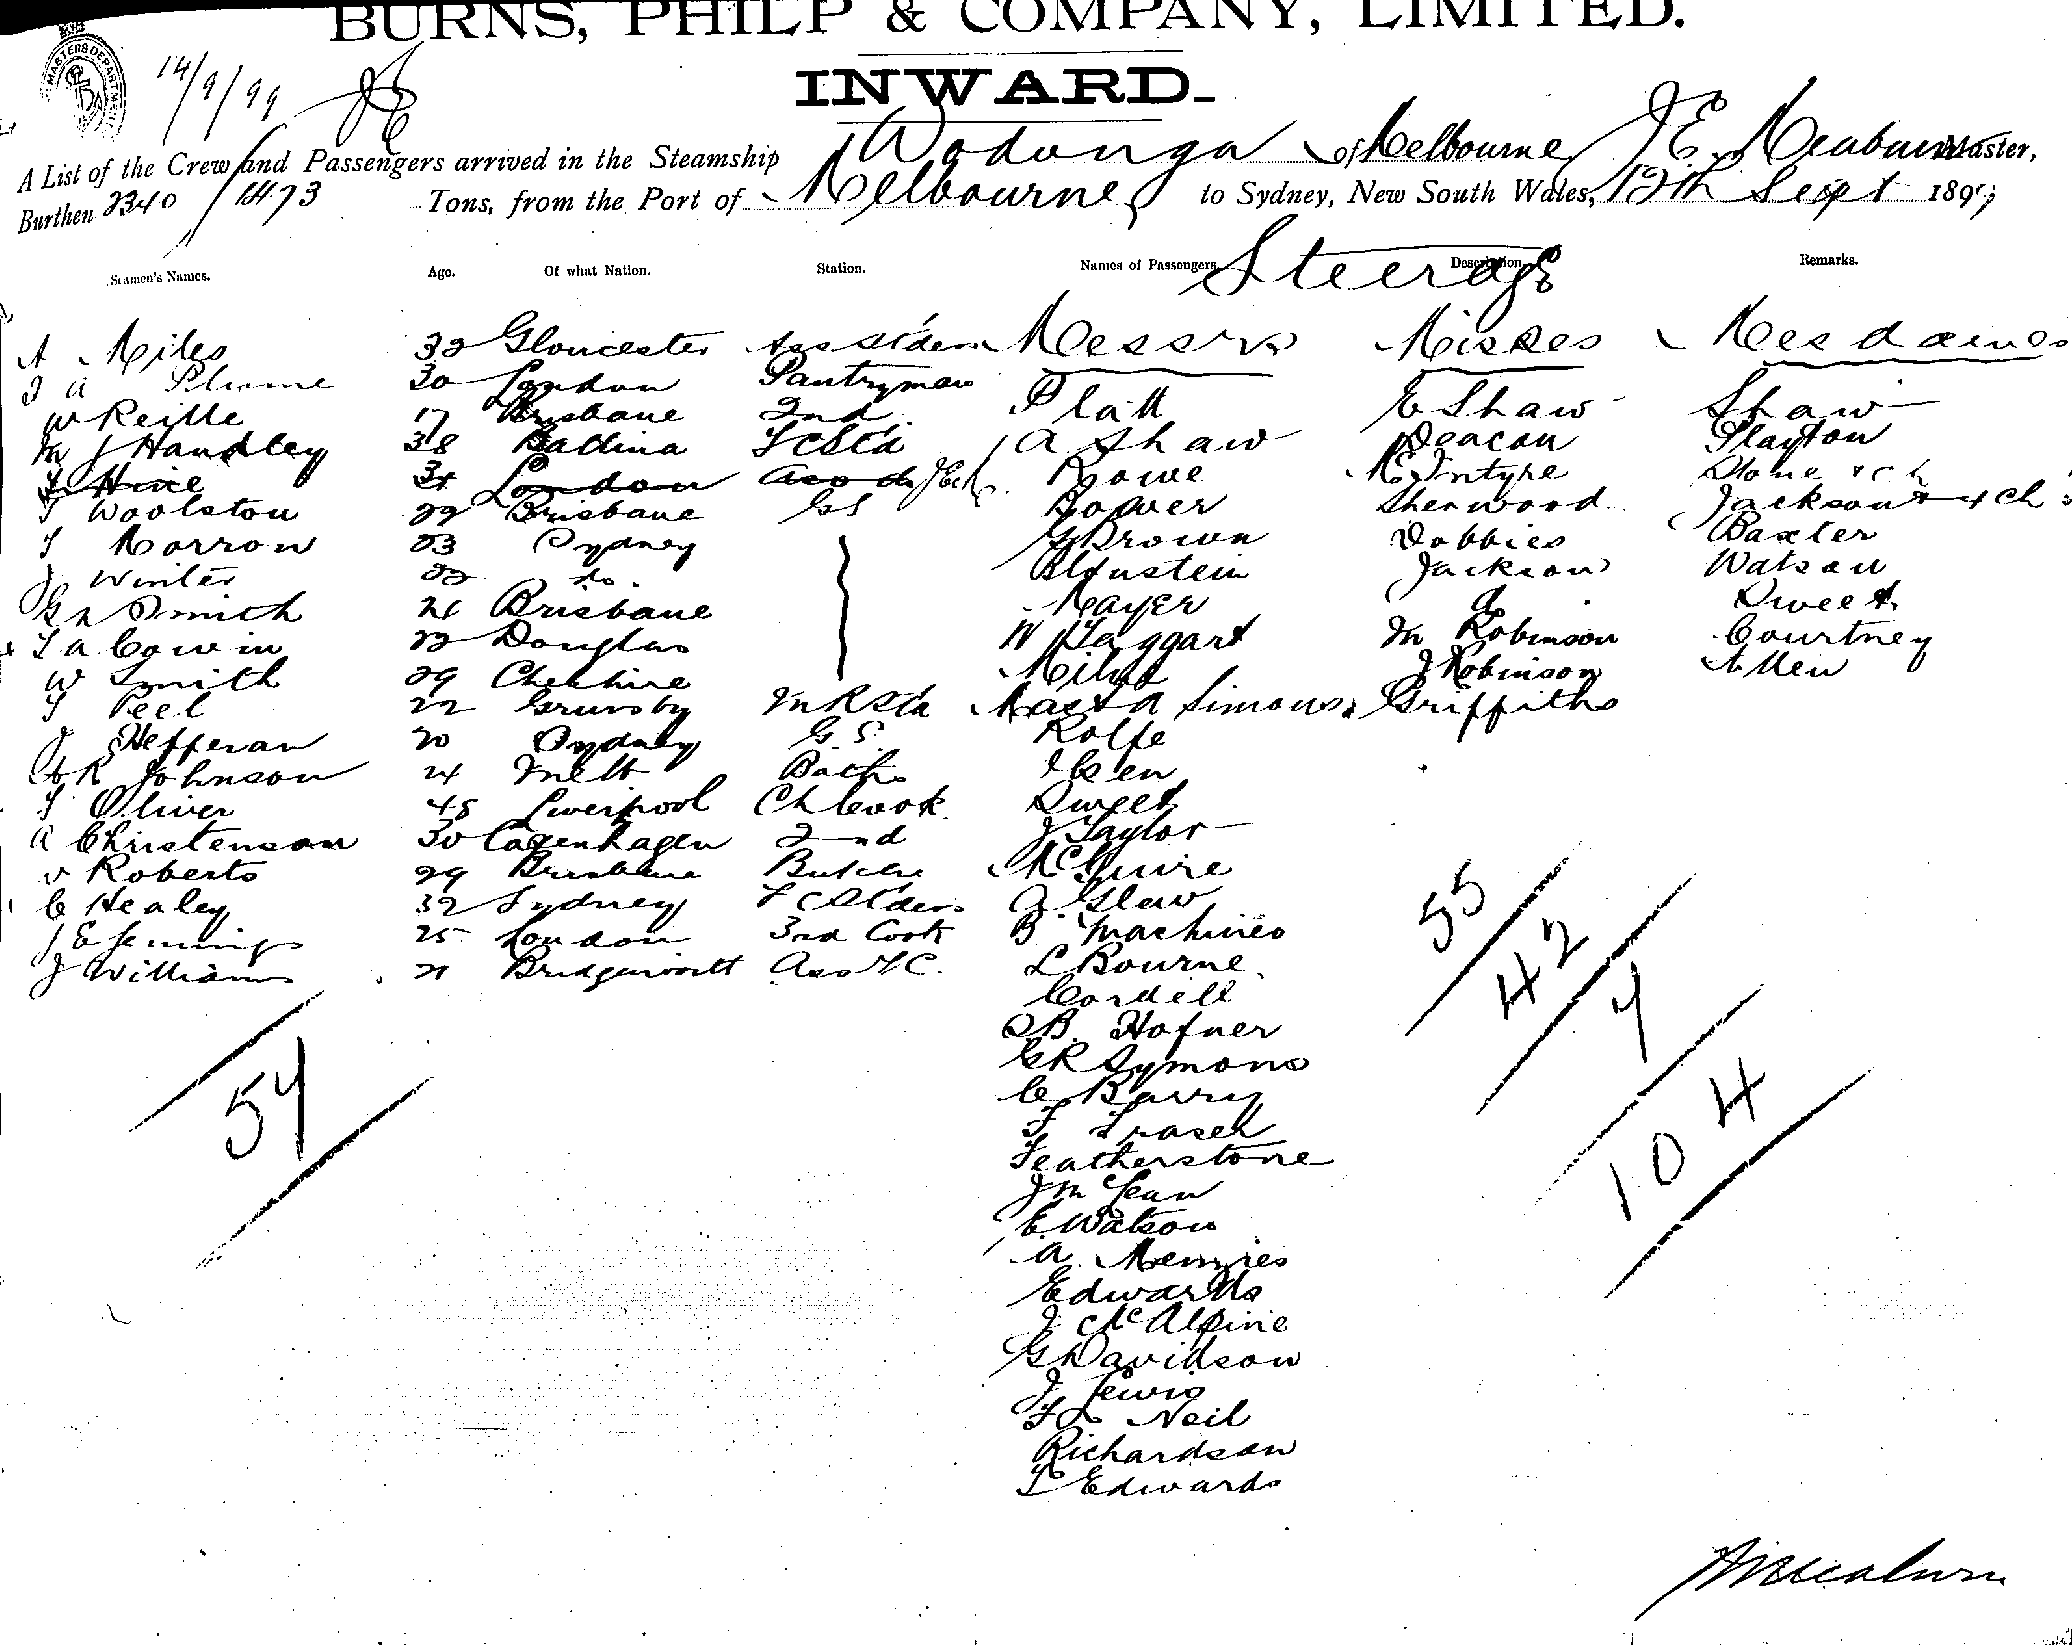 BURNS, PHILP & COMPANY, LIMITED.
INWARD.
14/9/99
A List of the Crew and Passengers arrived in the Steamship Wodonga of Melbourne J E Meaburn Master,
Burthen 2340 / 1473 Tons, from the Port of Melbourne to Sydney, New South Wales, 12th Sept 1899
Seamen's Names. Age. Of what Nation. Station. Names of Passengers Description Remarks.
Steerage
A Miles 32 Gloucester Messrs Misses Mesdames
J A Plume 30 London Pantryman
W Reille 17 Brisbane 2nd Platt E Shaw Shaw
M J Handley 38 Ballina F C Std A Shaw Deacon Slayton
T Hine 31 London Rowe McIntyre Stone & ch
T Woolston 29 Brisbane GS Bower Sherwood Jackson & 4 Ch
T Morrow 23 Sydney G Brown Dobbies Baxter
J Winter 22 do. Jackson Watson
G R Smith 21 Brisbane Mayer Sweet
T A Cowin 22 Douglas W Taggart M Robinson Courtney
W Smith 29 Cheshire Milne J Robinson Allen
T Peel 22 Grimsby Mast A Simons Griffiths
J Hefferan 20 Sydney G.S. Rolfe
R Johnson 24 Melb Baths Ibsen
T Oliver 48 Liverpool Ch Cook Sweet
A Christenson 30 Copenhagen 2nd J Taylor
V Roberts 29 Brisbane Butcher McGuire
C Healey 32 Sydney
J E Jennings 25 London 3rd Cook B Machines
J Williams 21 Bridgnorth Ass F C. L Bourne
Cordell
Hofner
G R Symons
C Barry
F Fraser
Featherstone
J M Lean
E Watson
A Menzies
Edwards
J McAlpine
G Davidson
J Lewis
Neil
Richardson
T Edwards
54
55
42
7
104